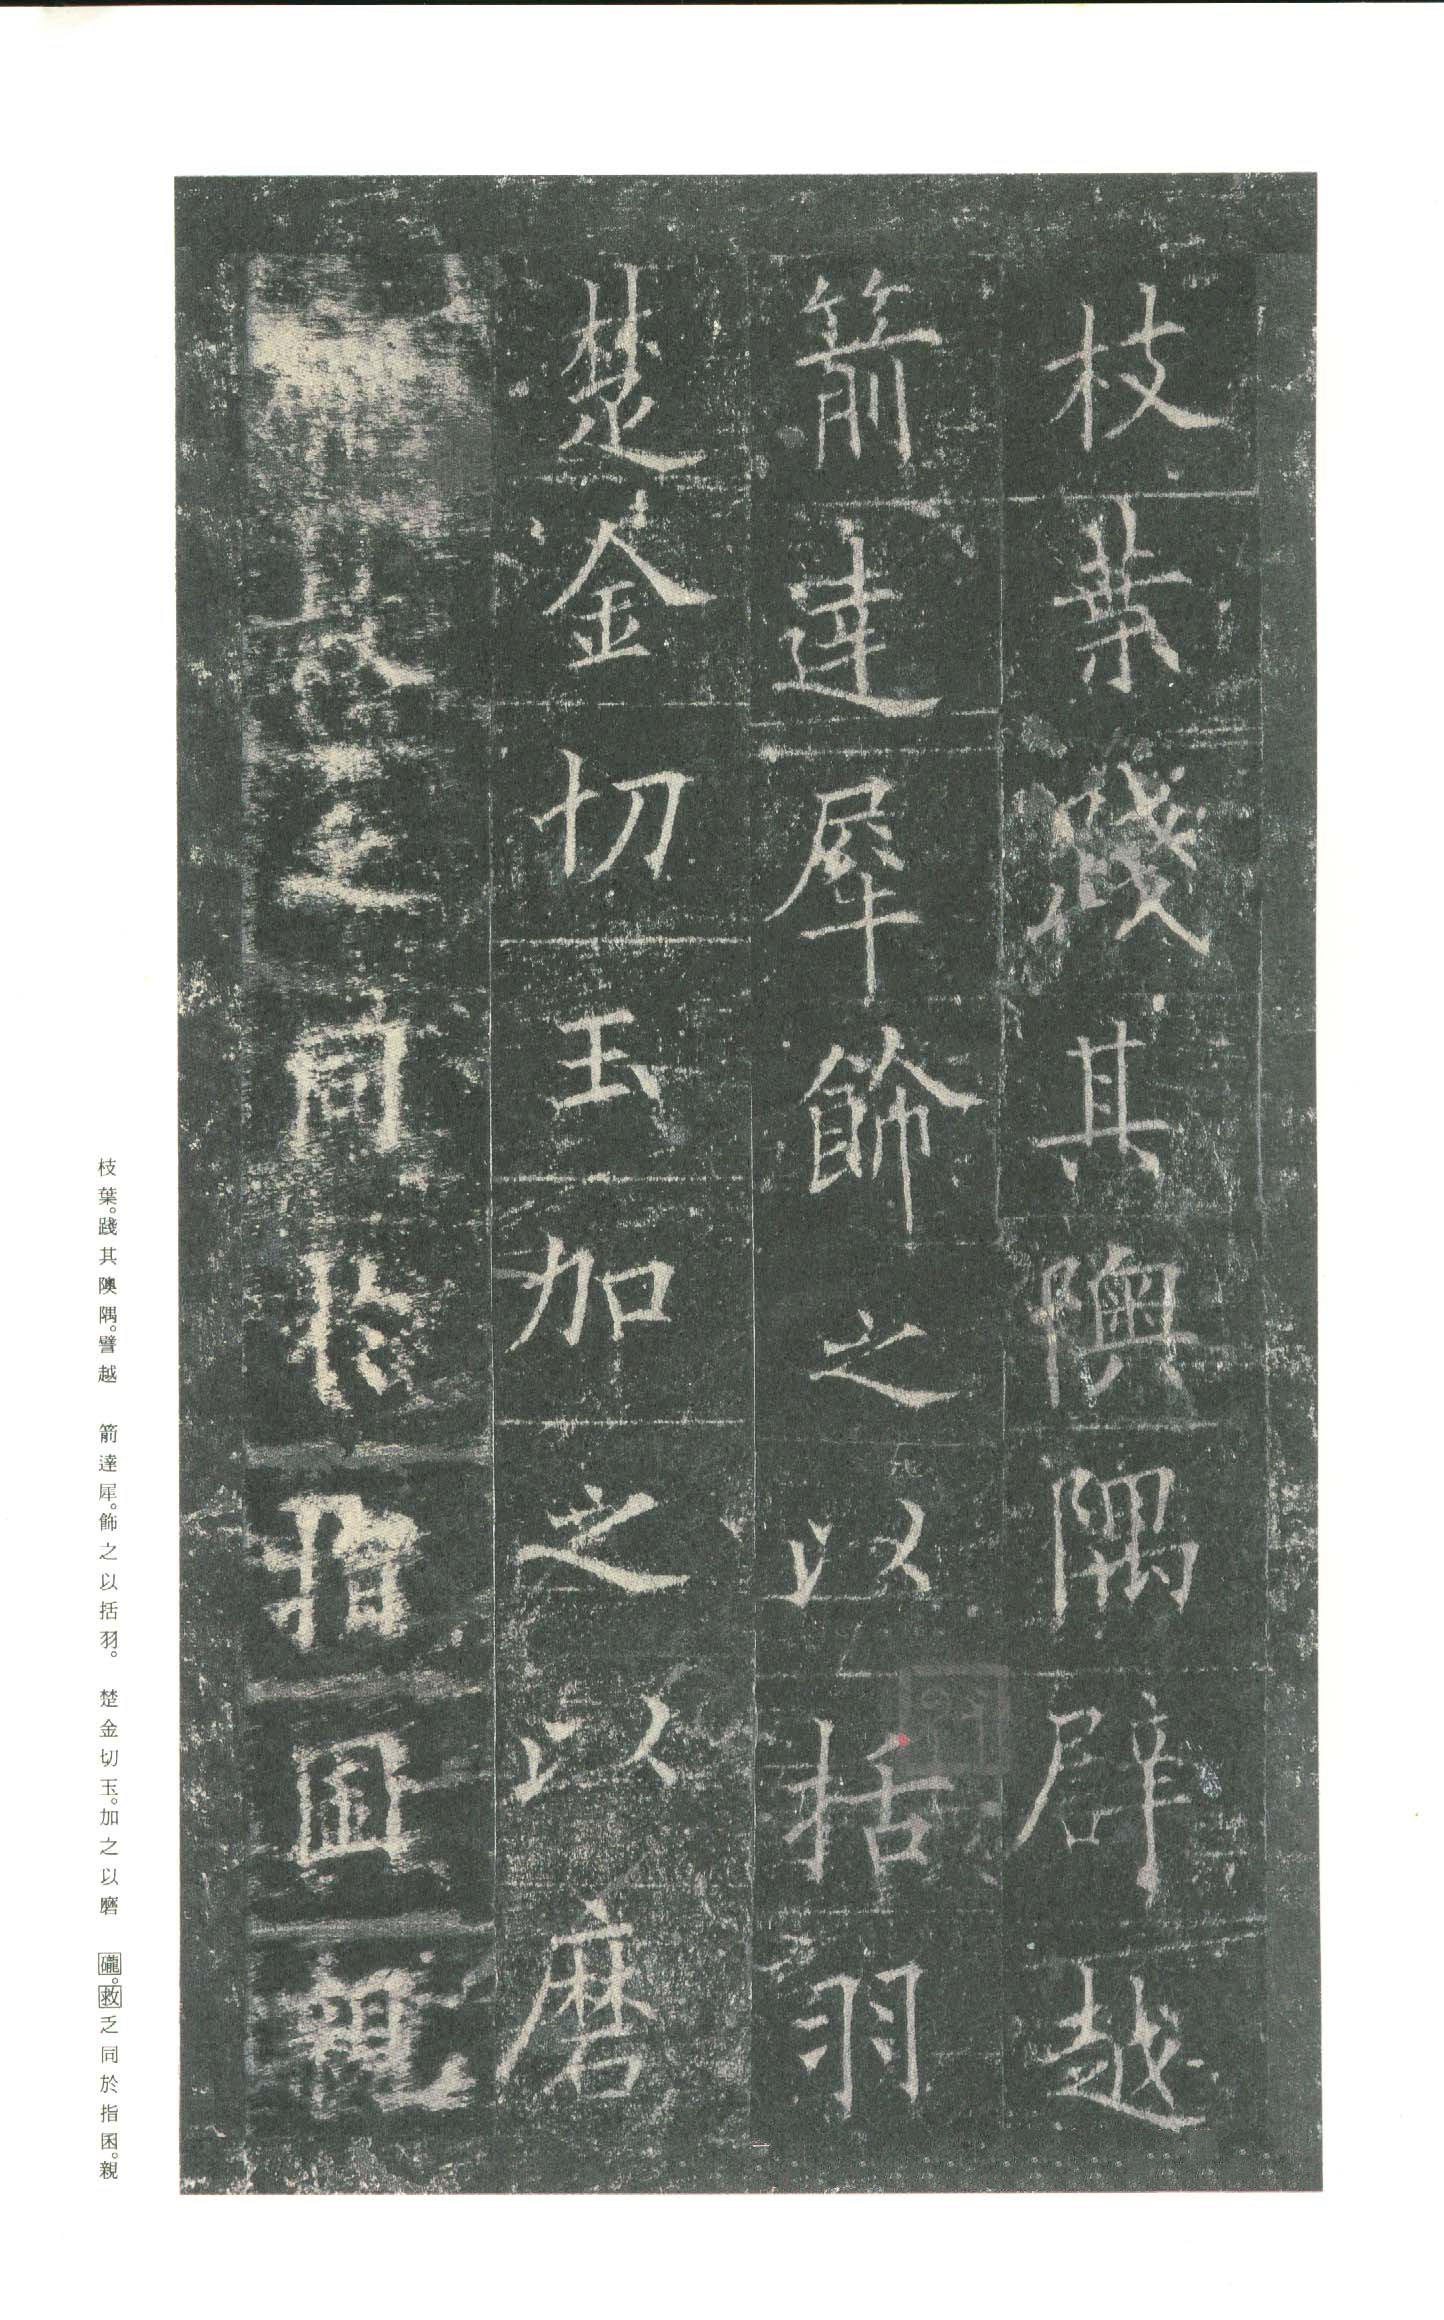 枝葉踐其隩隅辟越
箭達犀飾之以括羽
楚金切玉加之以磨
乏同於指囷親
枝葉。踐其隩隅。譬越　箭達犀。飾之以括羽。　楚金切玉。加之以磨　礲。救乏同於指囷。親